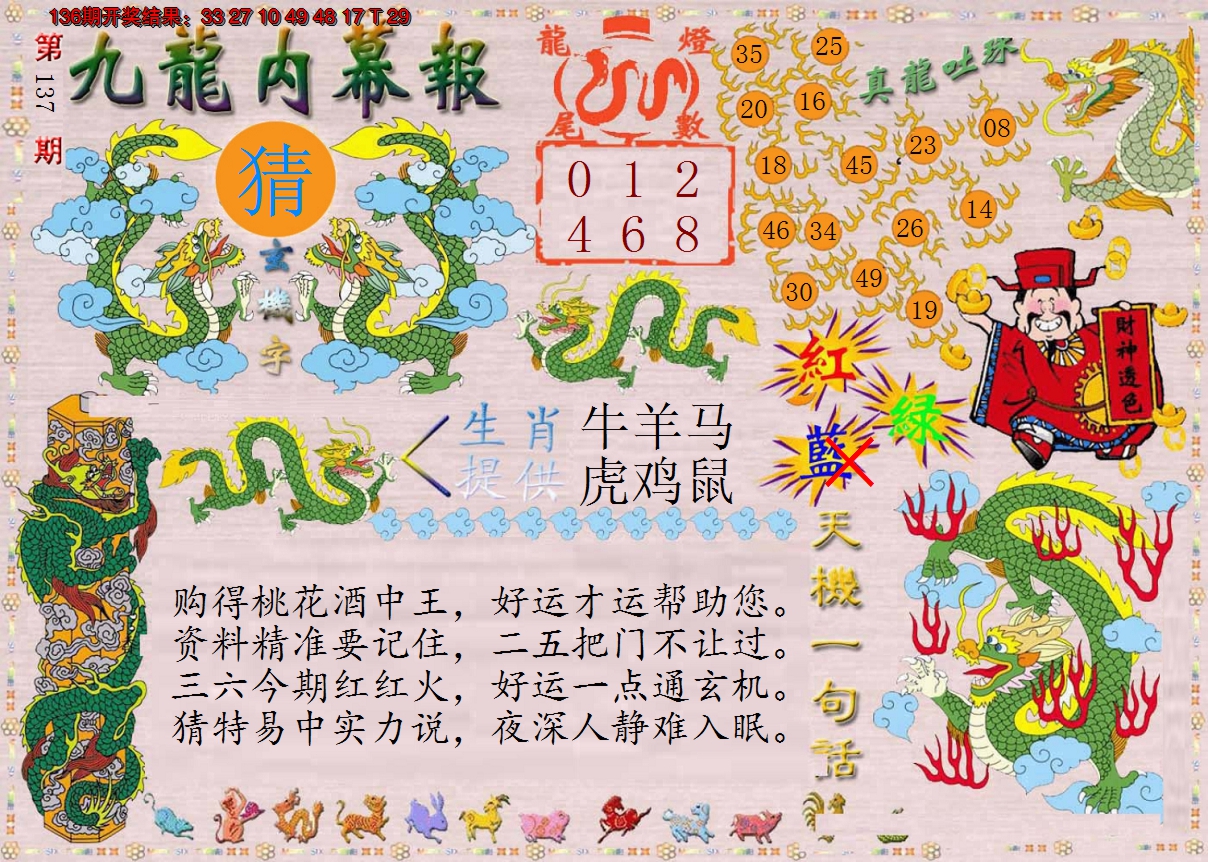 136期开奖结果：33 27 10 49 48 17 T 29
第137期
九龍内幕報
猜
玄機字
龍燈尾數
0 1 2
4 6 8
真龍吐珠
35 25
20 16
18 45 23 08
46 34 26 14
30 49 19
財神透色
紅
綠
藍
生肖提供
牛羊马
虎鸡鼠
天機一句話
购得桃花酒中王，好运才运帮助您。
资料精准要记住，二五把门不让过。
三六今期红红火，好运一点通玄机。
猜特易中实力说，夜深人静难入眠。